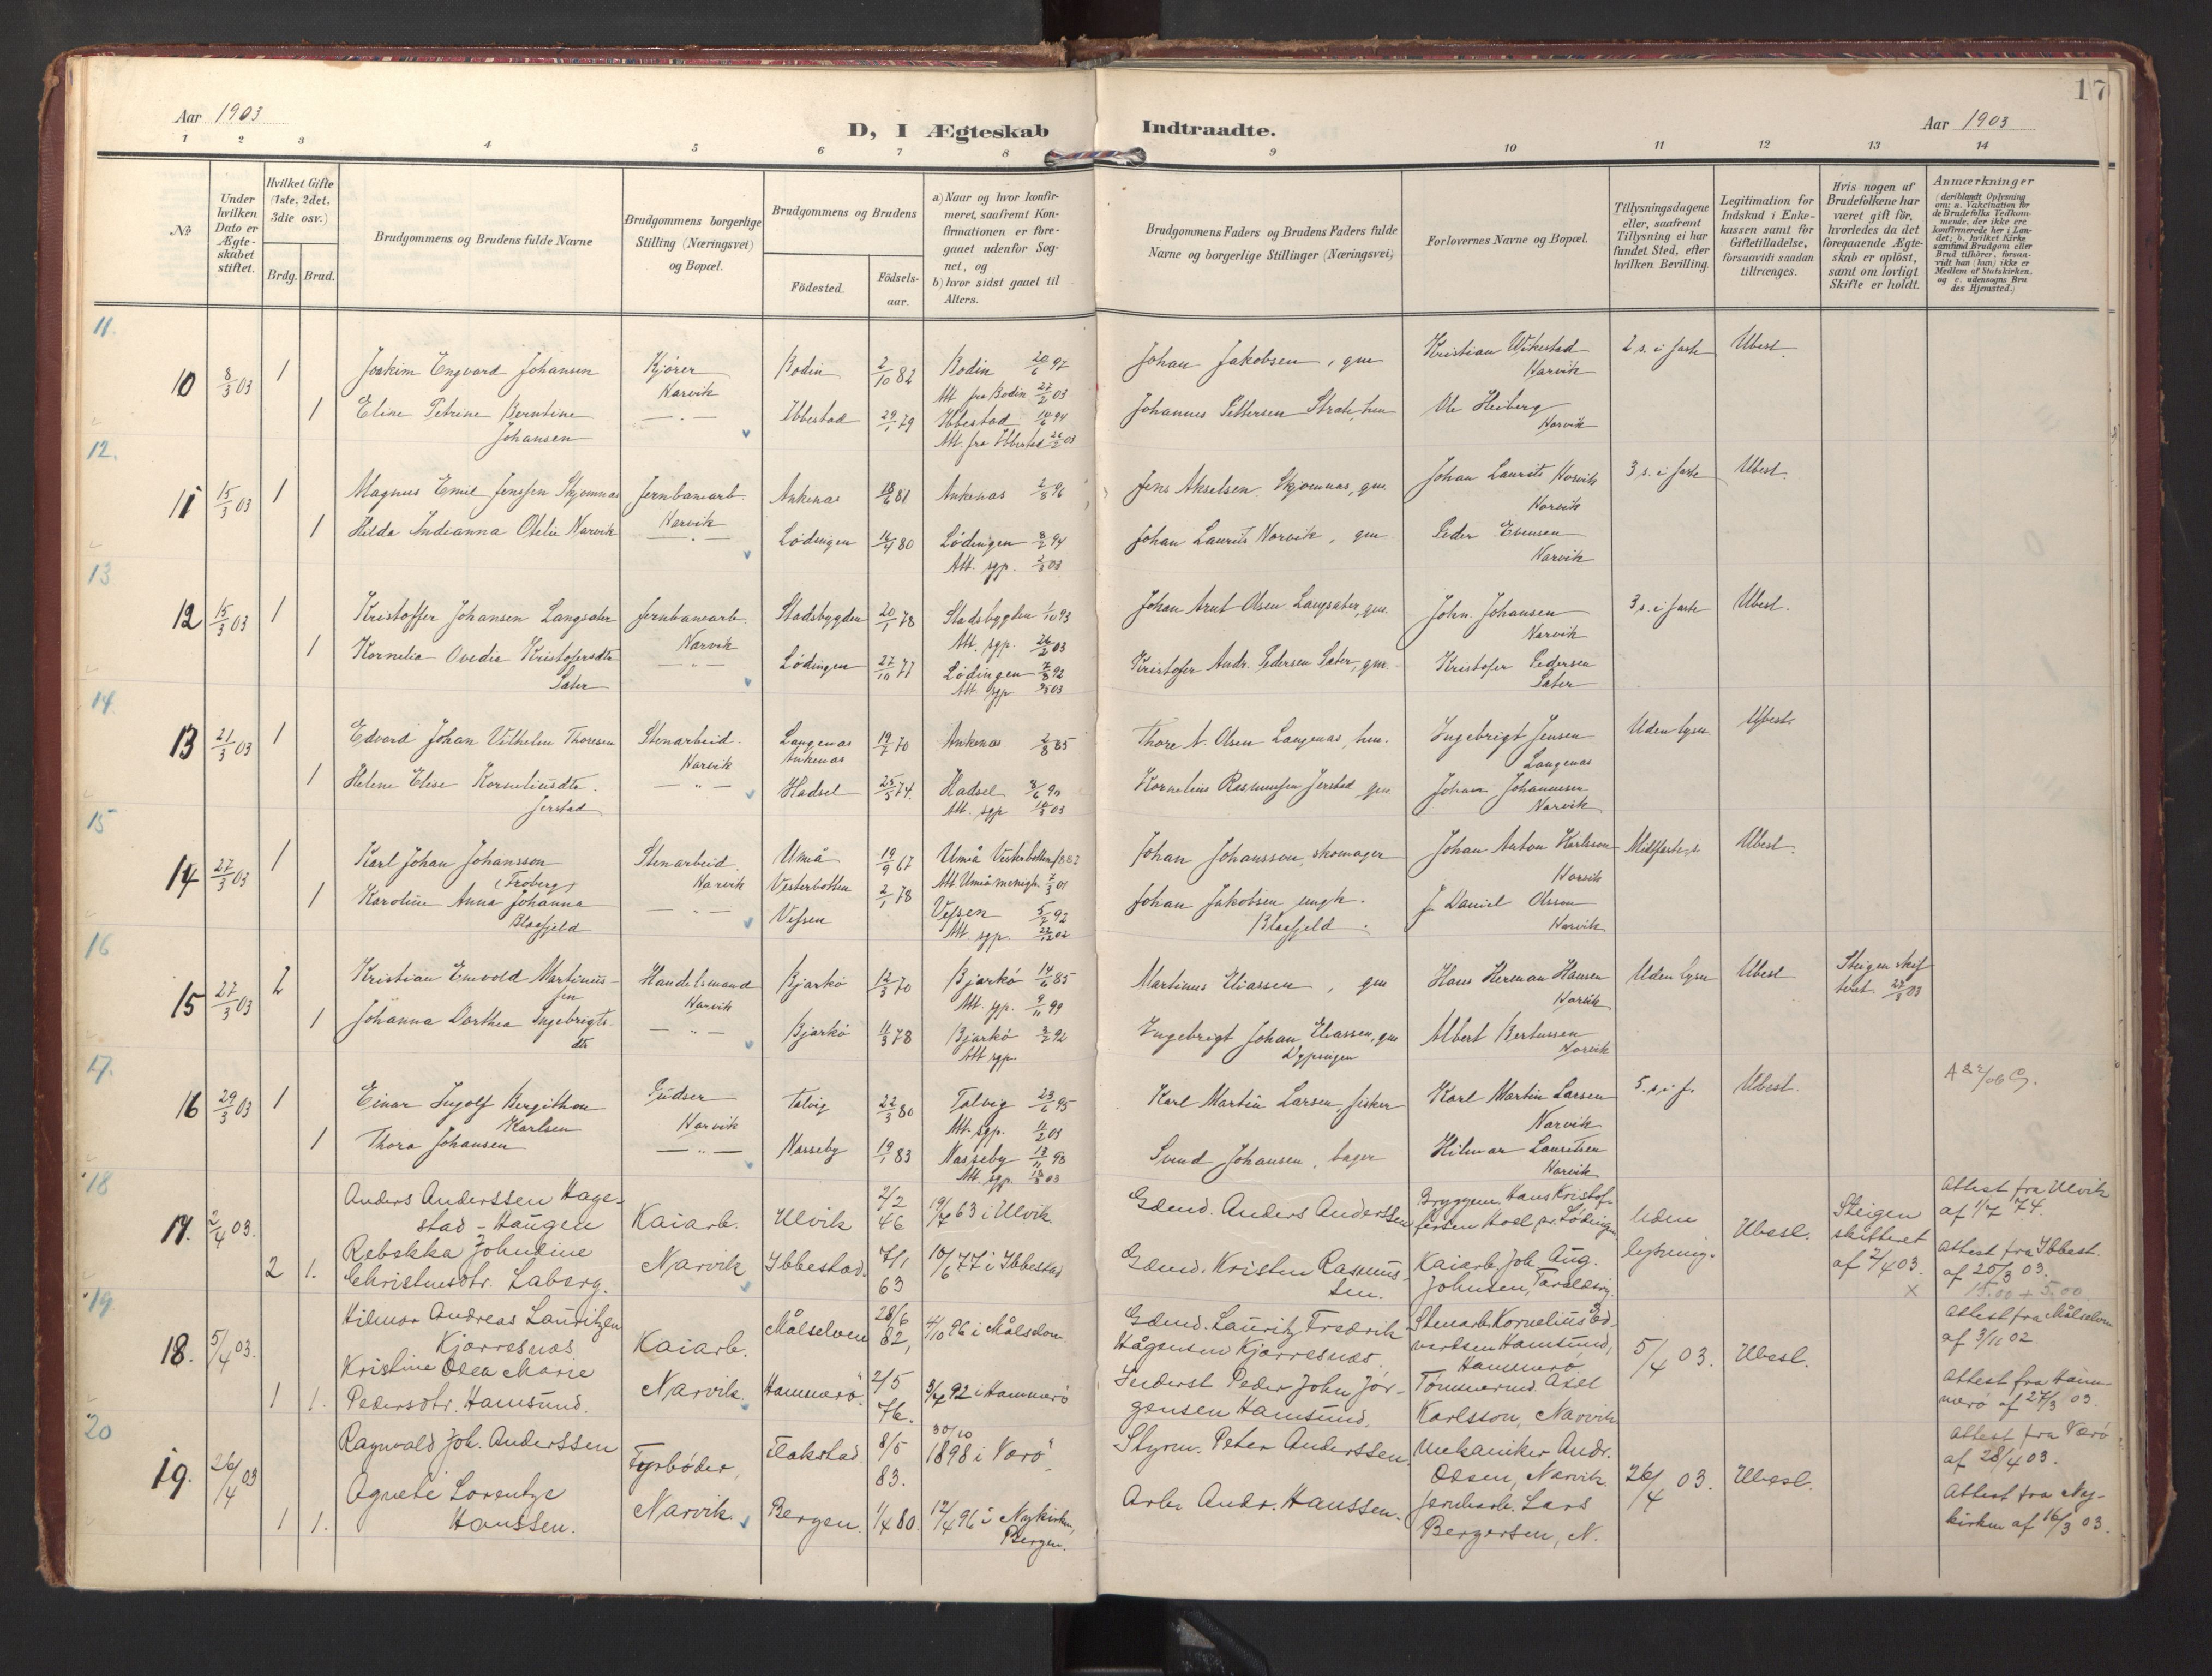 17
Aar 1903
D, I Ægteskab Indtraadte.
Aar 1903
1 2 3 4 5 6 7 8 9 10 11 12 13 14
No
Under hvilken Dato er Ægte-skabet stiftet.
Hvilket Gifte (1ste, 2det, 3die osv.)
Brdg. Brud.
Brudgommens og Brudens fulde Navne
Brudgommens borgerlige Stilling (Næringsvei) og Bopæl.
Brudgommens og Brudens
Födested.
Födsels-aar.
a) Naar og hvor konfir-meret, saafremt Kon-firmationen er fore-gaaet udenfor Sog-net, og
b) hvor sidst gaaet til Alters.
Brudgommens Faders og Brudens Faders fulde Navne og borgerlige Stillinger (Næringsvei)
Forlovernes Navne og Bopæl.
Tillysningsdagene eller, saafremt Tillysning ei har fundet Sted, efter hvilken Bevilling.
Legitimation for Indskud i Enke-kassen samt for Giftetilladelse, forsaavidt saadan tiltrænges.
Hvis nogen af Brudefolkene har været gift før, hvorledes da det foregaaende Ægte-skab er oplöst, samt om lovligt Skifte er holdt.
Anmærkninger
11.
10 8/3 03 1 Joakim Engvard Johansen Kjörer Narvik Bodin 2/10 82 Bodin 20/6 97 Johan Jakobsen, gm Kristian Wikestad Narvik 2 s. i faste Ubesl.
Att. fra Bodin 27/2 03
1 Eline Petrine Berntine Johansen — " — Ibbestad 29/1 79 Ibbestad 14/6 94 Johannes Pettersen Strate, hm Ole Heiberg Narvik
12.
11 15/3 03 1 Magnus Emil Jenssen Skjomnæs Jernbanearb. Narvik Ankenæs 18/6 81 Ankenæs 2/8 96 Jens Akselsen Skjomnæs, gm. Johan Laurits Narvik Narvik 3 s. i faste Ubesl.
1 Hilda Indianna Otelie Narvik — " — Lödingen 80 Lödingen 94 Johan Laurits Narvik, gm Peder Evensen Narvik
Att. sgp. 2/3 03
13
12 15/3 03 1 Kristoffer Johansen Langsæter Jernbanearb. Narvik Stadsbygden 20/1 78 Stadsbygden 1/10 93 Johan Arnt Olsen Langsæter, gm. John Johansen Narvik 3 s. i faste Ubesl.
Att. sgp. 24/2 03
1 Kornelia Ovedia Kristofersdtr Sæter — " — Lödingen 27/10 77 Lödingen 7/8 92 Kristofer Andr. Pedersen Sæter, gm. Kristofer Pedersen Sæter
Att. sgp 03
14.
13 21/3 03 1 Edvard Johan Vilhelm Thoresen Stenarbeid. Narvik Langenæs Ankenæs 19/7 70 Ankenæs 2/8 85 Thore A. Olsen Langenæs, hm. Ingebrigt Jensen Langenæs Uden lysn. Ubesl.
1 Helene Elise Korneliusdtr. Jerstad — " — Hadsel 25/5 74. Hadsel 8/6 90 Kornelius Rasmussen Jerstad gm Johan Johannesen Narvik
Att. sgp 03
15
14 27/3 03 1 Karl Johan Johansson (Froberg) Stenarbeid. Narvik Umiå Vesterbotten 19/9 67 Umiå Vesterbotten 1882 Johan Johansson, skomager Johan Anton Karlsson Narvik Midfaste s. Ubesl.
Att. Umiå menigh. 7/3 01
1 Karoline Anna Johanna Blaafjeld — " — Vefsen 2/1 78 Vefsen 5/7 92 Johan Jakobsen ungk. Blaafjeld. J. Daniel Olsson Narvik
Att. sgp. 22/12 02
16
15 27/3 03 2 Kristian Envold Martinussen Handelsmand Narvik Bjarkö 12/3 70 Bjarkö 14/6 85 Martinus Eliassen, gm Hans Herman Hansen Narvik Uden lysn Ubesl Steigen skifteret 03
Att. sgp. 9/11 99
1 Johanna Dorthea Ingebrigtsdtr — " — Bjarkö 11/3 78 Bjarkö 92 Ingebrigt Johan Eliassen, gm Albert Bertussen Narvik
Att sgp.
17.
16 29/3 03 1 Einar Ingolf Bergithon Karlsen Narvik Talvig 22/3 80 Talvig 23/6 95 Karl Martin Larsen, fisker Karl Martin Larsen Narvik 5. s. i f. Ubesl.
Att. sgp. 11/2 03
1 Thora Johansen — " — Næsseby 19/1 83 Næsseby 13/11 98 Svend Johansen, bager Hilmar Lauritsen Narvik
Att. sgp. 03
18
17. 2/4 03. Anders Anderssen Hage-stad - Haugen Kaiarb. Ulvik 2/2 46 19/7 63 i Ulvik. Gdmd. Anders Anderssen Bryggem. Hans Kristof-fersen Hoel pr. Lödingen Uden lysning. Ubesl. Steigen skifteret af 2/4 03. Attest fra Ulvik af 1/7 74.
2 1. Rebekka Johndine Christensdtr. Laberg. Narvik Ibbestad. 7/1 63 10/6 77 i Ibbestad Gdmd. Kristen Rasmus-sen. Kaiarb. Joh. Aug. Johnsen, Taraldsvig. Attest fra Ibbest. af 25/3 03.
x 15.00 + 5.00
19.
18. 5/4 03. Hilmar Andreas Lauritzen Kjærresnæs Kaiarb. Målselven 28/6 82, 4/10 96 i Målselven. Gdmd. Lauritz Fredrik Hågensen Kjærresnæs. Stenarb. Kornelius Ed-vartsen Hamsund, Hammerö 5/4 03. Ubesl. Attest fra Målselven af 3/11 02.
1 1. Kristine Olea Marie Pedersdtr. Hamsund. Narvik. Hammerö. 2/5 76. 92 i Hammerö Inderst Peder John Jör-gensen Hamsund. Tömmermd. Axel Karlsson, Narvik Attest fra Ham-merö af 27/3 03.
20
19. 26/4 03 Ragnvald Joh. Anderssen Fyrböder, Flakstad 8/5 83. 30/10 1898 i Værö. Styrm. Peter Anderssen. Mekaniker Andr. Olsen, Narvik 26/4 03. Ubesl. Attest fra Værö af 28/4 03.
1 1. Agnete Lorentze Hanssen. Narvik. Bergen. 1/4 80. 12/4 96 i Nykirken, Bergen. Arb. Andr. Hanssen. Jernbarb. Lars Bergersen, N. Attest fra Ny-kirken af 16/3 03.